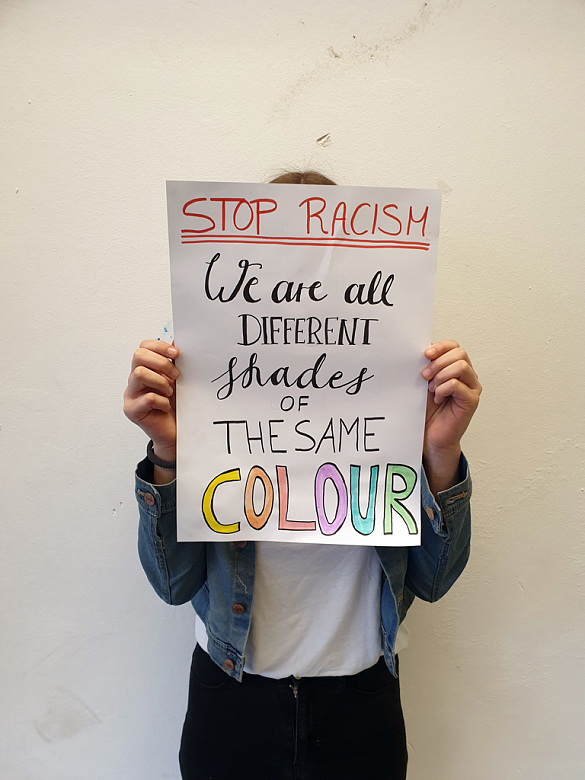 STOP RACISM
We are all
DIFFERENT
shades
OF
THE SAME
COLOUR